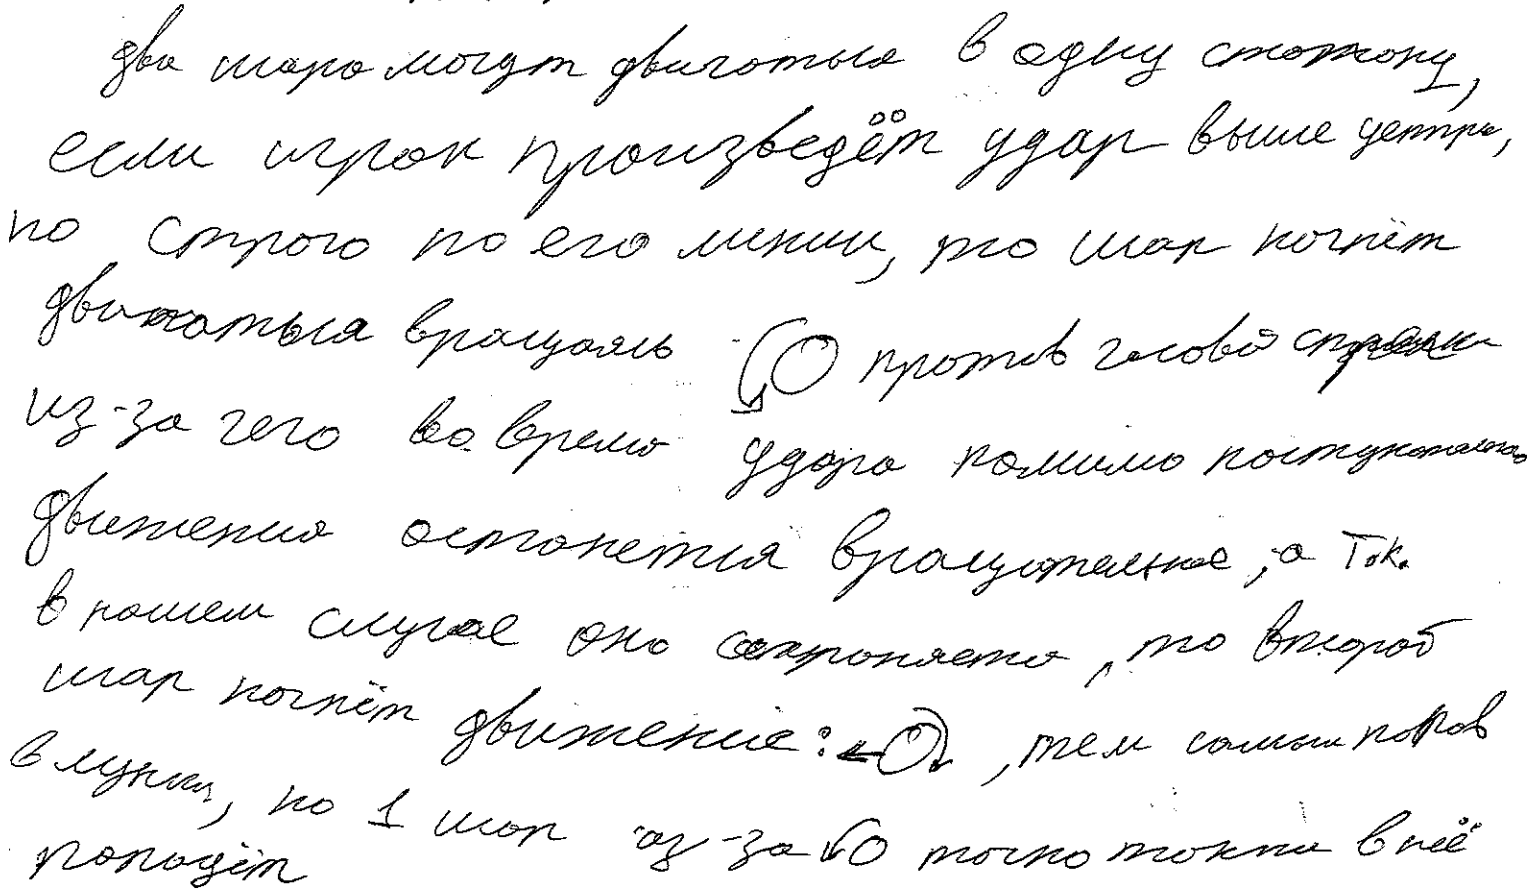 два шара могут двигаться в одну сторону,
если игрок произведёт удар выше центра,
но строго по его линии, то шар начнёт
двигаться вращаясь против часовой стрелки
из-за чего во время удара помимо поступательного
движения останется вращательное, а т.к.
в нашем случае оно сохраняется, то второй
шар начнёт движение: , тем самым попав
в лунку, но 1 шар из-за точно также в неё
попадёт